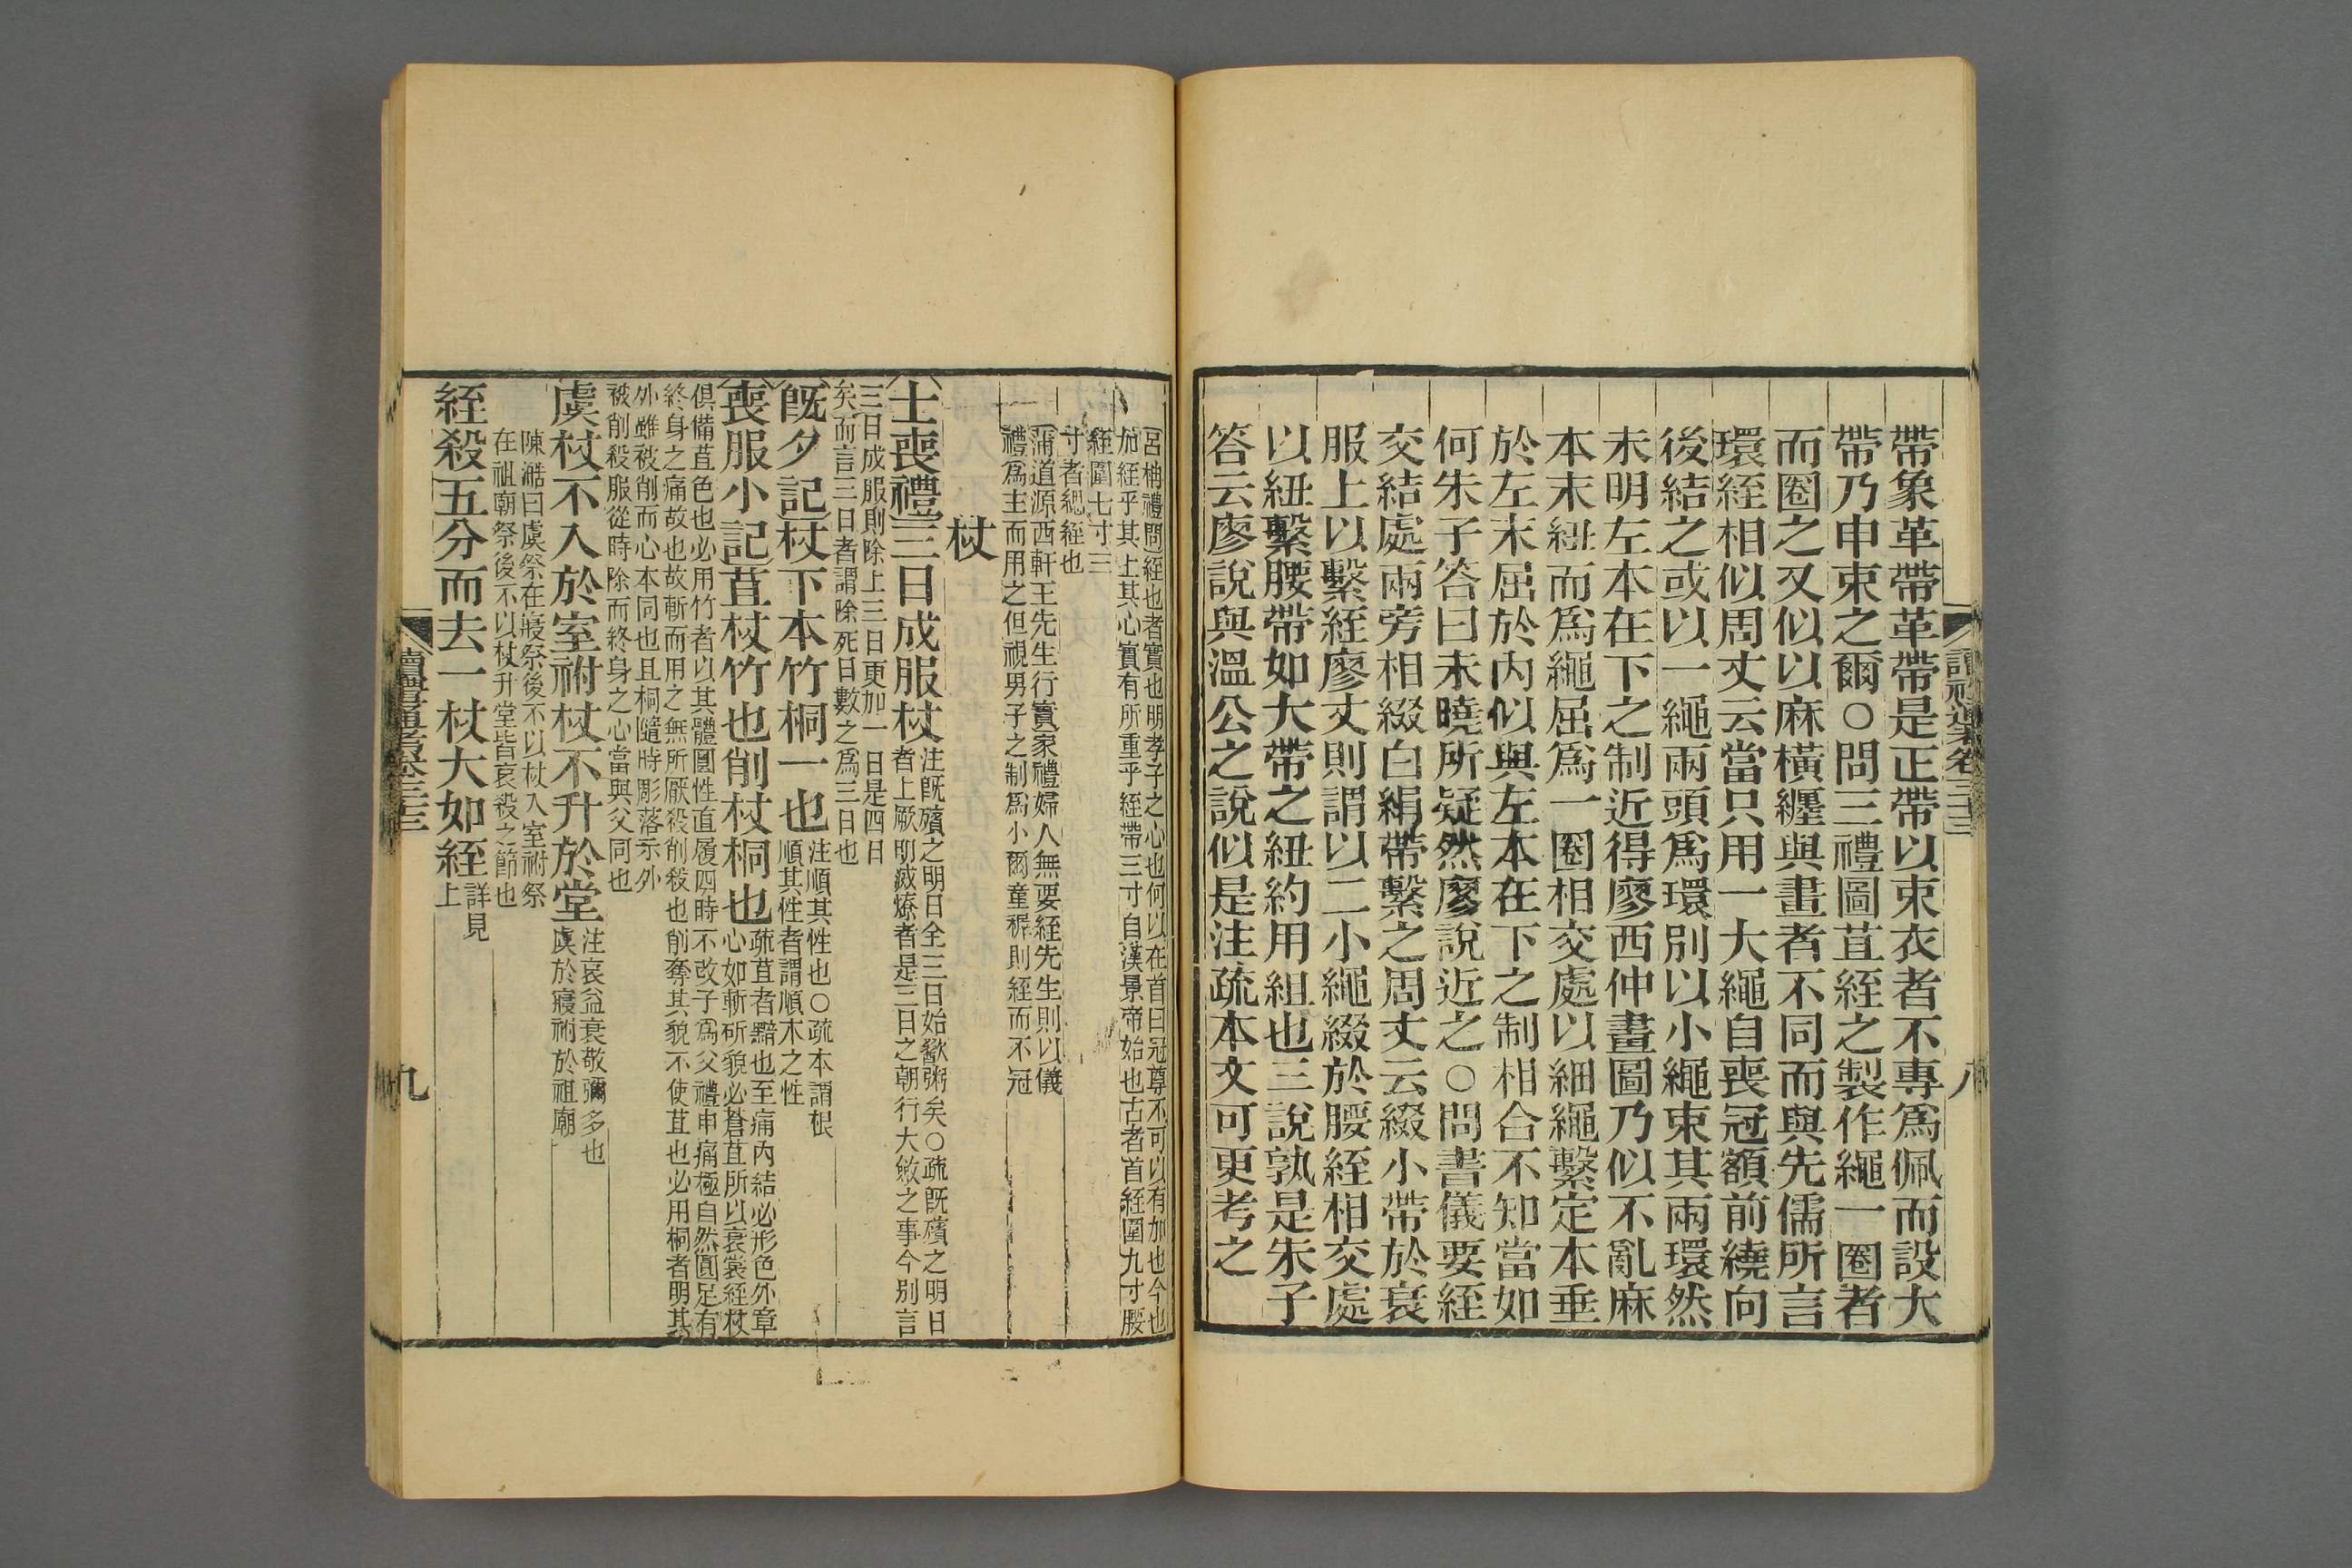 帶象革帶革帶是正帶以束衣者不專爲佩而設大
帶乃申束之爾○問三禮圖苴絰之製作繩一圈者
而圈之又似以麻橫纒與畫者不同而與先儒所言
環絰相似周丈云當只用一大繩自喪冠額前繞向
後結之或以一繩兩頭爲環別以小繩束其兩環然
未明左本在下之制近得廖西仲畫圖乃似不亂麻
本末紐而爲繩屈爲一圈相交處以細繩繫定本垂
於左末屈於內似與左本在下之制相合不知當如
何朱子答曰未曉所疑然廖說近之○問書儀要絰
交結處兩旁相綴白絹帶繫之周丈云綴小帶於衰
服上以繫絰廖丈則謂以二小繩綴於腰絰相交處
以紐繫腰帶如大帶之紐約用組也三說孰是朱子
答云廖說與溫公之說似是注疏本文可更考之
讀禮通考卷三十三
八
呂柟禮問絰也者實也明孝子之心也何以在首曰冠尊不可以有加也今也
加絰乎其上其心實有所重乎絰帶三寸自漢景帝始也古者首絰圍九寸腰
絰圍七寸三
寸者緦絰也
蒲道源西軒王先生行實家禮婦人無要絰先生則以儀
禮爲主而用之但視男子之制爲小爾童穉則絰而不冠
杖
士喪禮三日成服杖
注旣殯之明日全三日始歠粥矣○疏旣殯之明日
者上厥明滅燎者是三日之朝行大斂之事今別言
三日成服則除上三日更加一日是四日
矣而言三日者謂除死日數之爲三日也
旣夕記杖下本竹桐一也
注順其性也○疏本謂根
順其性者謂順木之性
喪服小記苴杖竹也削杖桐也
疏苴者黯也至痛內結必形色外章
心如斬斫貌必蒼苴所以衰裳絰杖
俱備苴色也必用竹者以其體圓性直履四時不改子爲父禮申痛極自然圓足有
終身之痛故也故斬而用之無所厭殺削殺也削奪其貌不使苴也必用桐者明其
外雖被削而心本同也且桐隨時彫落示外
被削殺服從時除而終身之心當與父同也
虞杖不入於室祔杖不升於堂
注哀益衰敬彌多也
虞於寢祔於祖廟
陳澔曰虞祭在寢祭後不以杖入室祔祭
在祖廟祭後不以杖升堂皆哀殺之節也
絰殺五分而去一杖大如絰
詳見
上
讀禮通考卷三十三
九